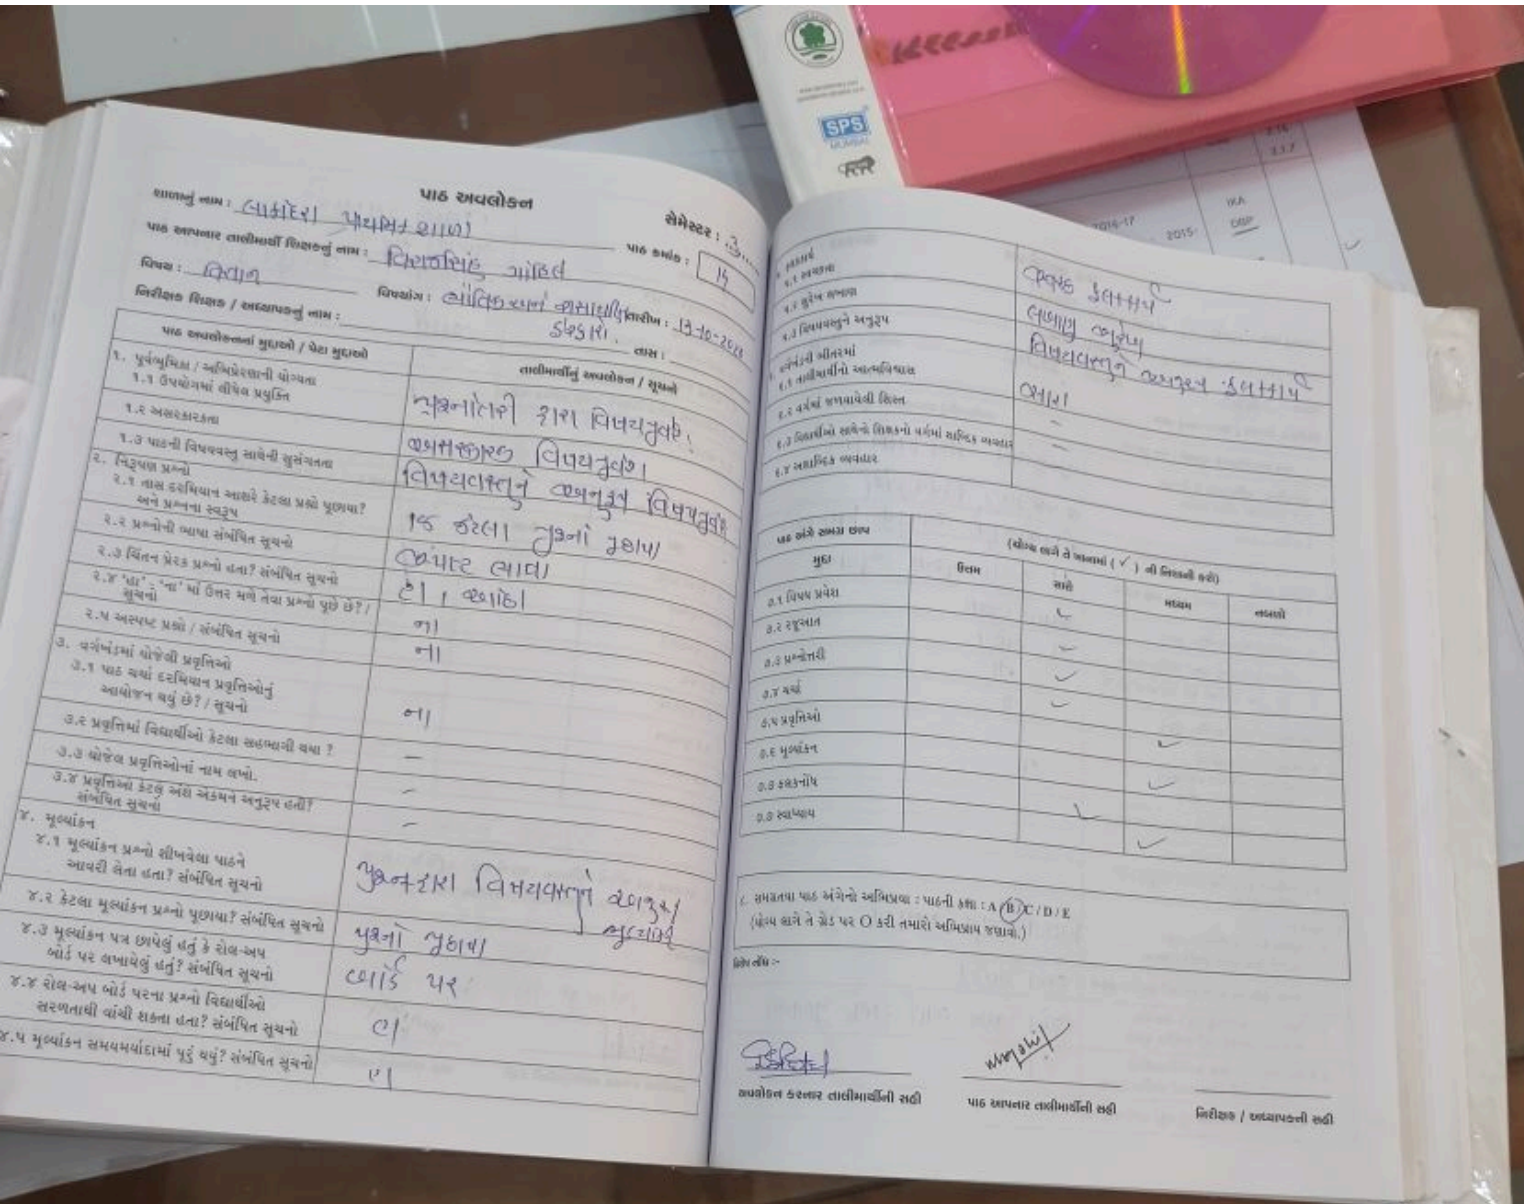 પાઠ અવલોકન
સેમેસ્ટર : 3
શાળાનું નામ : લાકોદરા પ્રાથમિક શાળા
પાઠ ક્રમાંક :
પાઠ આપનાર તાલીમાર્થી શિક્ષકનું નામ : વિરાજસિંહ ગોહિલ
વિષય : વિજ્ઞાન
વિષયાંગ : ભૌતિક અને રાસાયણિક ફેરફારો.
તારીખ :
નિરીક્ષક શિક્ષક / અધ્યાપકનું નામ :
તાસ :
પાઠ અવલોકનનાં મુદ્દાઓ / પેટા મુદ્દાઓ
તાલીમાર્થીનું અવલોકન / સૂચનો
૧. પૂર્વભૂમિકા / અભિપ્રેરણાની યોગ્યતા
૧.૧ ઉપયોગમાં લીધેલ પ્રયુક્તિ
પ્રશ્નોતરી દ્વારા વિષયપ્રવેશ
૧.૨ અસરકારકતા
અસરકારક વિષયપ્રવેશ
૧.૩ પાઠની વિષયવસ્તુ સાથેની સુસંગતતા
વિષયવસ્તુને અનુરૂપ વિષયપ્રવેશ
૨. નિરૂપણ પ્રશ્નો
૨.૧ તાસ દરમિયાન આશરે કેટલા પ્રશ્નો પૂછાયા?
અને પ્રશ્નના સ્વરૂપ
કેટલા પ્રશ્નો પૂછાયા
૨.૨ પ્રશ્નોની ભાષા સંબંધિત સૂચનો
સ્પષ્ટ ભાષા
૨.૩ ચિંતન પ્રેરક પ્રશ્નો હતા? સંબંધિત સૂચનો
હા,
૨.૪ 'હા' - 'ના' માં ઉત્તર મળે તેવા પ્રશ્નો પૂછે છે? /
સૂચનો
ના
૨.૫ અસ્પષ્ટ પ્રશ્નો / સંબંધિત સૂચનો
ના
૩. વર્ગખંડમાં યોજેલી પ્રવૃત્તિઓ
૩.૧ પાઠ ચર્ચા દરમિયાન પ્રવૃત્તિઓનું
આયોજન થયું છે? / સૂચનો
ના
૩.૨ પ્રવૃત્તિમાં વિદ્યાર્થીઓ કેટલા સહભાગી થયા ?
–
૩.૩ યોજેલ પ્રવૃત્તિઓનાં નામ લખો.
–
૩.૪ પ્રવૃત્તિઓ કેટલે અંશે એકમને અનુરૂપ હતી?
સંબંધિત સૂચનો
–
૪. મૂલ્યાંકન
૪.૧ મૂલ્યાંકન પ્રશ્નો શીખવેલા પાઠને
આવરી લેતા હતા? સંબંધિત સૂચનો
પ્રશ્ન દ્વારા વિષયવસ્તુને અનુરૂપ મૂલ્યાંકન
૪.૨ કેટલા મૂલ્યાંકન પ્રશ્નો પુછાયા? સંબંધિત સૂચનો
પ્રશ્નો પૂછાયા
૪.૩ મૂલ્યાંકન પત્ર છાપેલું હતું કે રોલ-અપ
બોર્ડ પર લખાયેલું હતું? સંબંધિત સૂચનો
બોર્ડ પર
૪.૪ રોલ-અપ બોર્ડ પરના પ્રશ્નો વિદ્યાર્થીઓ
સરળતાથી વાંચી શકતા હતા? સંબંધિત સૂચનો
હા
૪.૫ મૂલ્યાંકન સમયમર્યાદામાં પૂરું થયું? સંબંધિત સૂચનો
હા
SPS
MUMBAI
2016-17
2015-
IKA
DBP
૫.૧ સ્વચ્છતા
સ્વચ્છ ફલકકાર્ય
૫.૨ સુરેખ લખાણ
લખાણ સુરેખ
૫.૩ વિષયવસ્તુને અનુરૂપ
વિષયવસ્તુને અનુરૂપ ફલકકાર્ય
વર્ગખંડની ભીતરમાં
૬.૧ તાલીમાર્થીનો આત્મવિશ્વાસ
સારો
૬.૨ વર્ગમાં જળવાયેલી શિસ્ત
–
૬.૩ વિદ્યાર્થીઓ સાથેનો શિક્ષકનો વર્ગમાં શાબ્દિક વ્યવહાર
–
૬.૪ અશાબ્દિક વ્યવહાર
પાઠ અંગે સમગ્ર છાપ
(યોગ્ય લાગે તે ખાનામાં ( ✓ ) ની નિશાની કરો)
મુદ્દા
ઉત્તમ
સારો
મધ્યમ
નબળો
૭.૧ વિષય પ્રવેશ
૭.૨ રજૂઆત
૭.૩ પ્રશ્નોત્તરી
૭.૪ ચર્ચા
૭.૫ પ્રવૃત્તિઓ
૭.૬ મૂલ્યાંકન
૭.૭ ફલકનોંધ
૭.૭ સ્વાધ્યાય
૮. સમગ્રતયા પાઠ અંગેનો અભિપ્રાય : પાઠની કક્ષા : A / B / C / D / E
(યોગ્ય લાગે તે ગ્રેડ પર O કરી તમારો અભિપ્રાય જણાવો.)
વિશેષ નોંધ :-
અવલોકન કરનાર તાલીમાર્થીની સહી
પાઠ આપનાર તાલીમાર્થીની સહી
નિરીક્ષક / અધ્યાપકની સહી